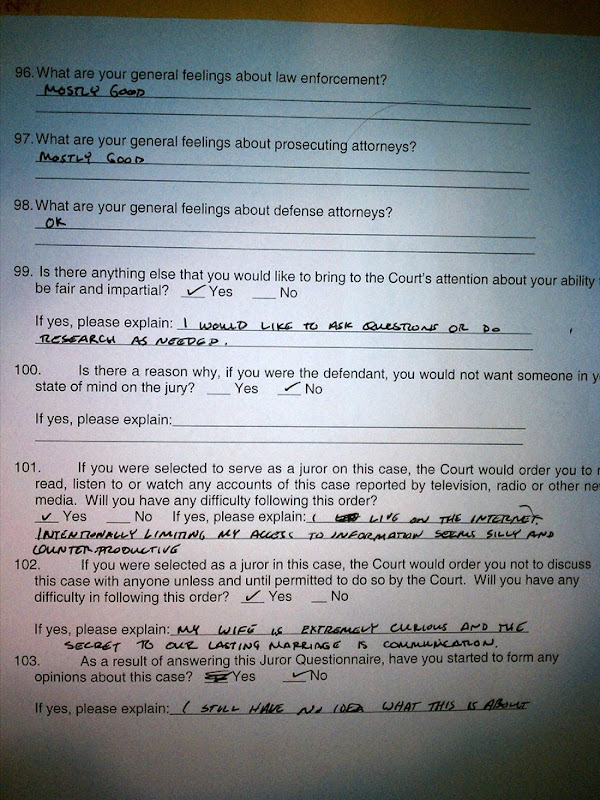 96. What are your general feelings about law enforcement?
MOSTLY GOOD
97. What are your general feelings about prosecuting attorneys?
MOSTLY GOOD
98. What are your general feelings about defense attorneys?
OK
99. Is there anything else that you would like to bring to the Court's attention about your ability
be fair and impartial? ✓ Yes ___ No
If yes, please explain: I WOULD LIKE TO ASK QUESTIONS OR DO
RESEARCH AS NEEDED.
100. Is there a reason why, if you were the defendant, you would not want someone in y
state of mind on the jury? ___ Yes ✓ No
If yes, please explain:
101. If you were selected to serve as a juror on this case, the Court would order you to
read, listen to or watch any accounts of this case reported by television, radio or other ne
media. Will you have any difficulty following this order?
✓ Yes ___ No If yes, please explain: I LIVE ON THE INTERNET.
INTENTIONALLY LIMITING MY ACCESS TO INFORMATION SEEMS SILLY AND
COUNTER-PRODUCTIVE
102. If you were selected as a juror in this case, the Court would order you not to discuss
this case with anyone unless and until permitted to do so by the Court. Will you have any
difficulty in following this order? ✓ Yes __ No
If yes, please explain: MY WIFE IS EXTREMELY CURIOUS AND THE
SECRET TO OUR LASTING MARRIAGE IS COMMUNICATION.
103. As a result of answering this Juror Questionnaire, have you started to form any
opinions about this case? Yes ✓ No
If yes, please explain: I STILL HAVE NO IDEA WHAT THIS IS ABOUT